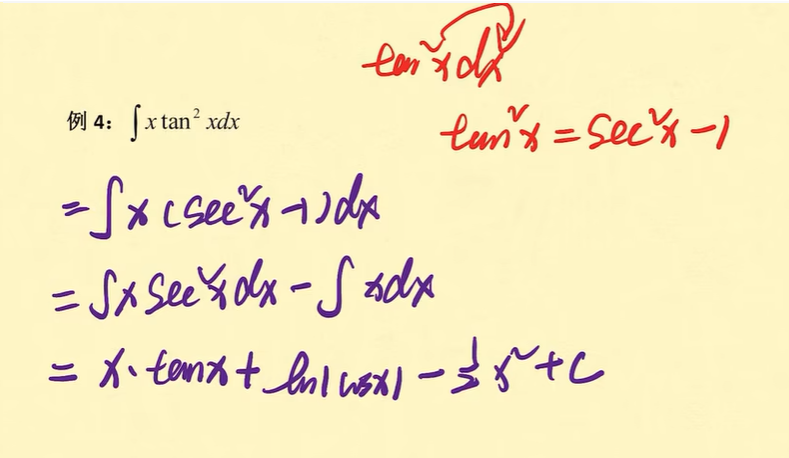 tan²x dx²
例 4: ∫ x tan² xdx
tan²x = sec²x - 1
= ∫ x (sec²x - 1) dx
= ∫ x sec²x dx - ∫ x dx
= x · tanx + ln|cosx| - 1/2 x² + C